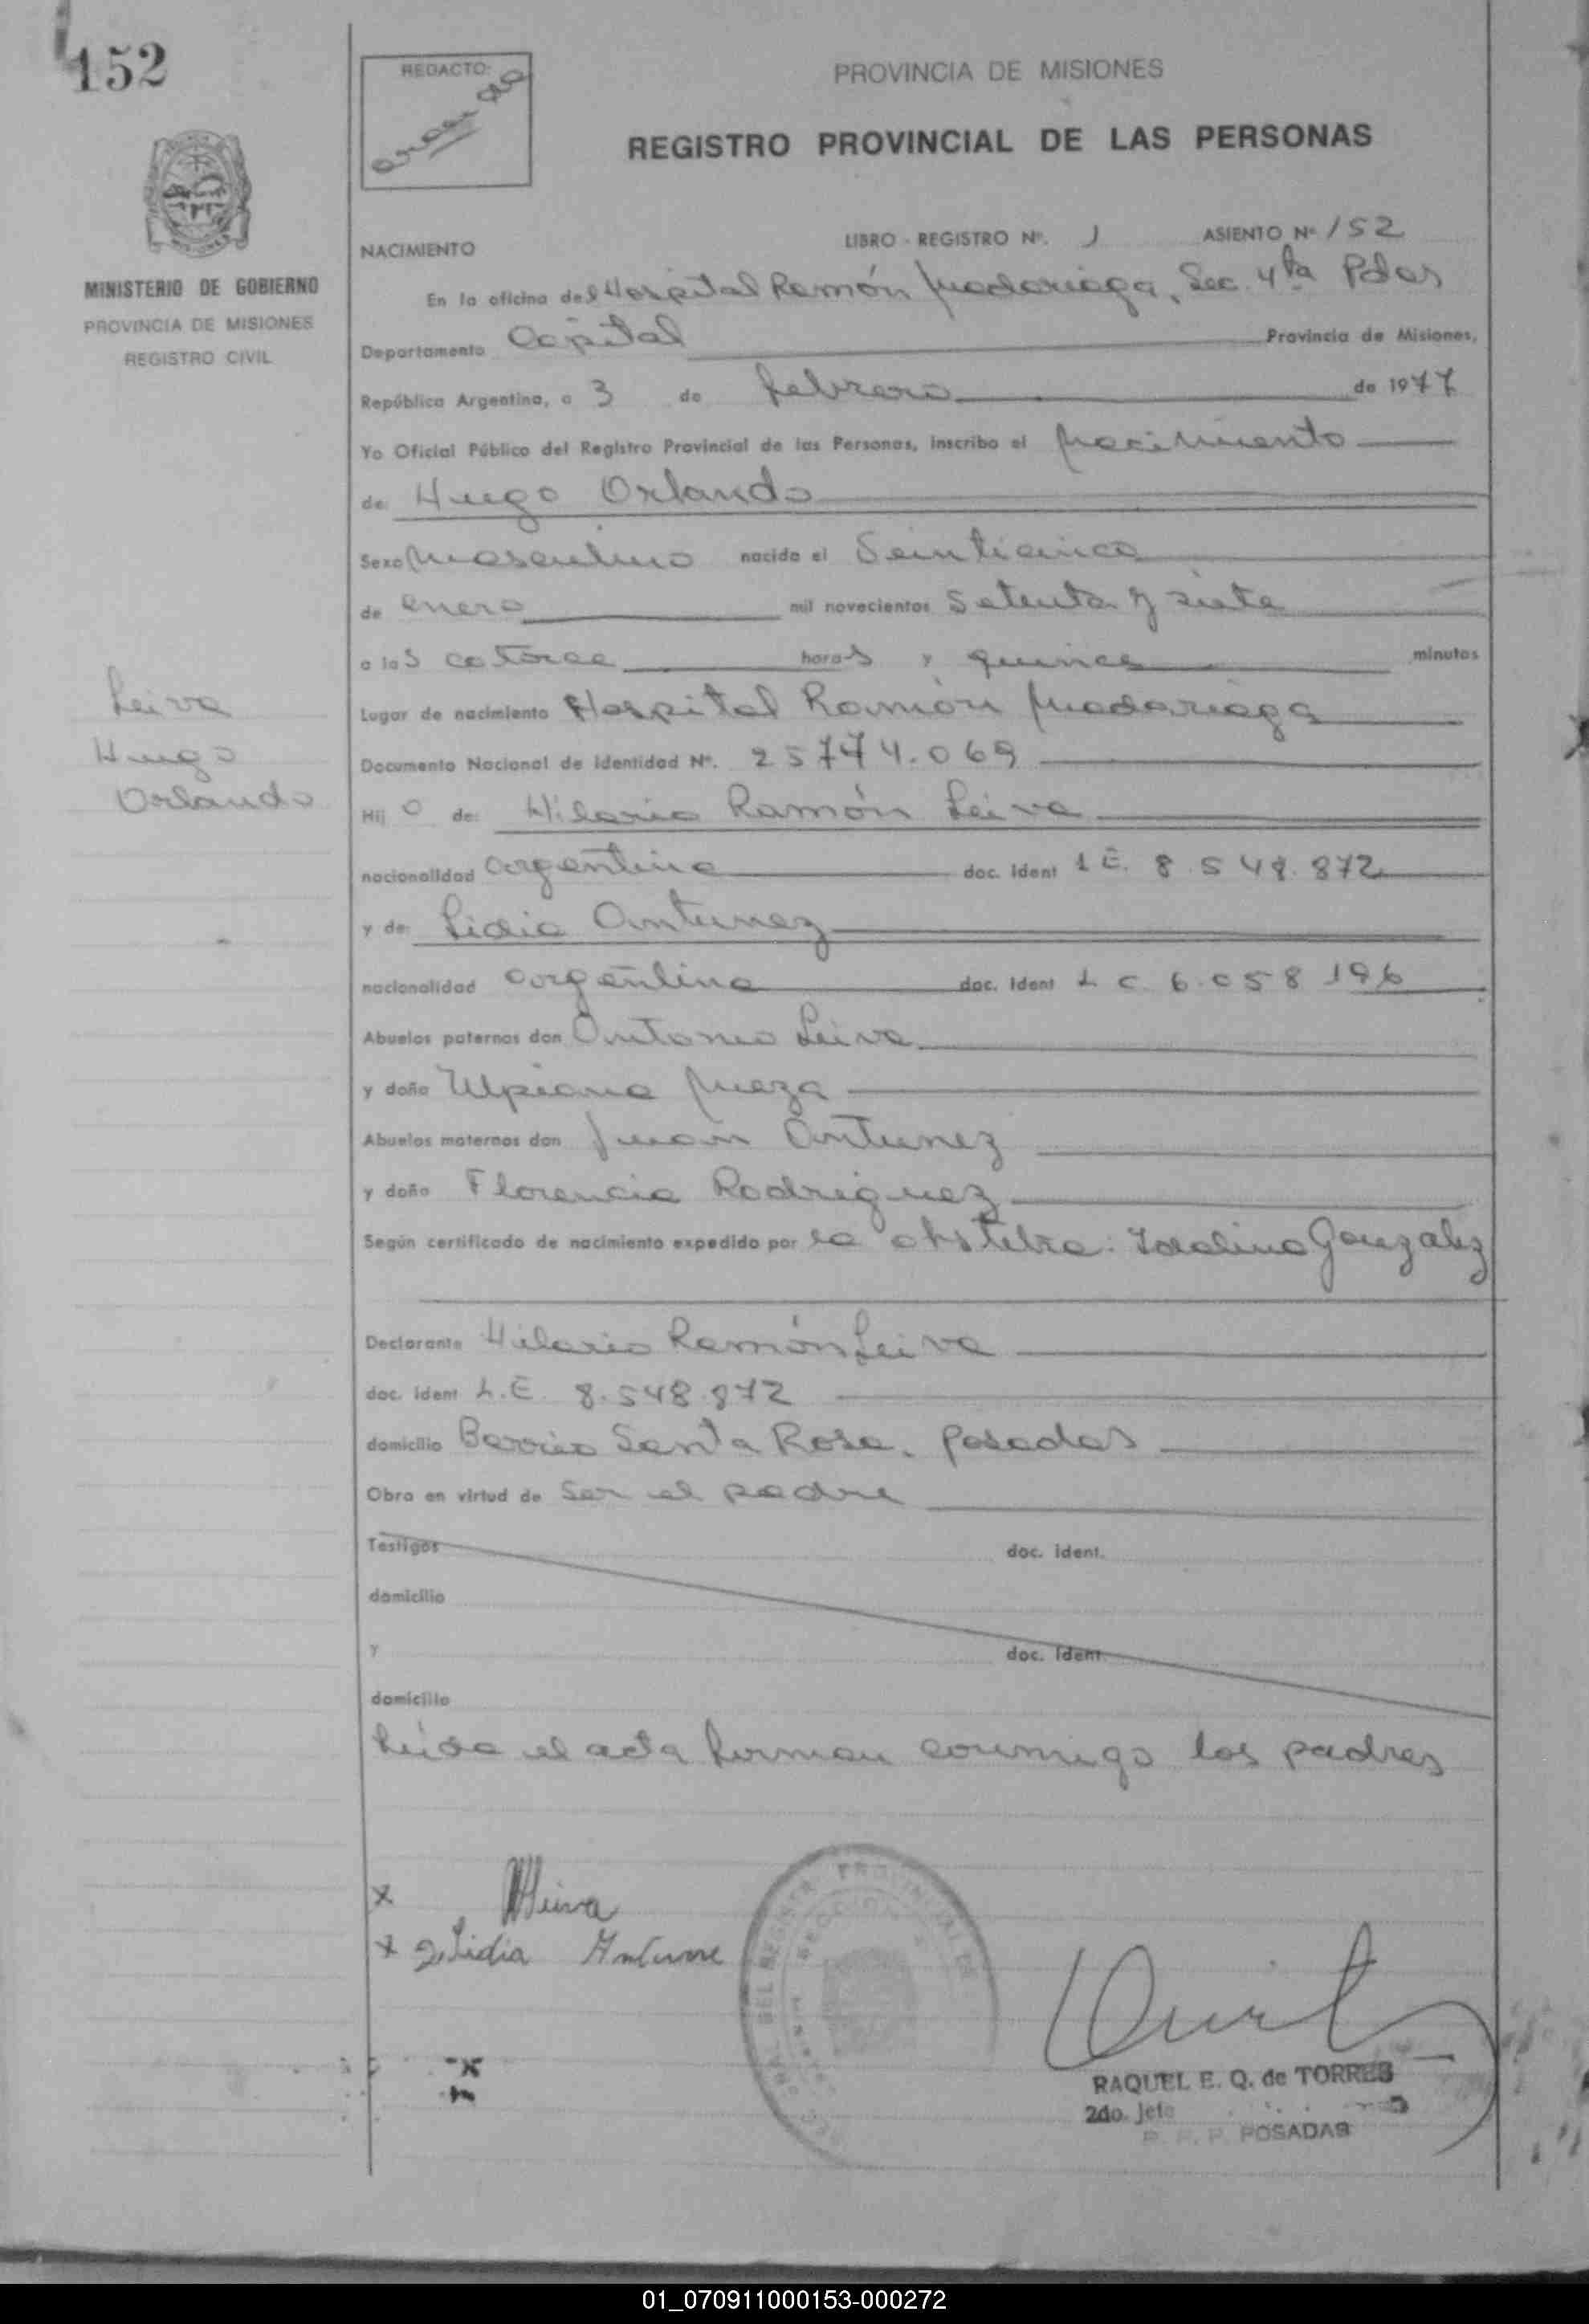 152
REDACTO:
PROVINCIA DE MISIONES
REGISTRO PROVINCIAL DE LAS PERSONAS
MINISTERIO DE GOBIERNO
PROVINCIA DE MISIONES
REGISTRO CIVIL
NACIMIENTO LIBRO - REGISTRO Nº. 1 ASIENTO Nº 152
En la oficina del Hospital Ramón Madariaga, Sec. 4ta Pdas
Departamento Capital Provincia de Misiones,
República Argentina, a 3 de febrero de 1977
Yo Oficial Público del Registro Provincial de las Personas, inscribo el nacimiento
de: Hugo Orlando
Sexo Masculino nacido el Veinticinco
de enero mil novecientos Setenta y siete
a las catorce horas y quince minutos
Lugar de nacimiento Hospital Ramón Madariaga
Leiva
Hugo
Orlando
Documento Nacional de Identidad Nº. 25.774.069
Hij o de: Hilario Ramón Leiva
nacionalidad argentina doc. ident L E. 8.548.872
y de: Lidia Antunez
nacionalidad argentina doc. ident L C 6.058 196
Abuelos paternos don Antonio Leiva
y doña Ulpiana Meza
Abuelos maternos don Juan Antunez
y doña Florencia Rodriguez
Según certificado de nacimiento expedido por la obstetra: Gonzalez
Declarante Hilario Ramón Leiva
doc. ident L.E. 8.548.872
domicilio Barrio Santa Rosa. Posadas
Obra en virtud de Ser el padre
Testigos doc. ident.
domicilio
y doc. ident.
domicilio
Leída el acta firman conmigo los padres
x Leiva
x Lidia Antune
RAQUEL E. Q. de TORRES
2do. Jefe
POSADAS
01_070911000153-000272